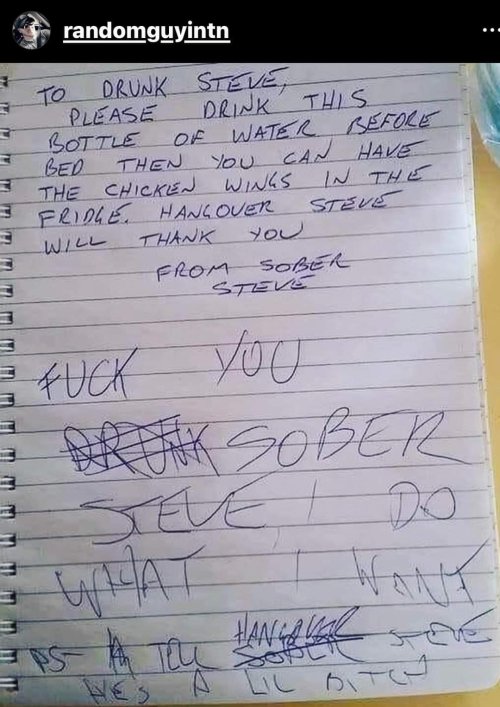 randomguyintn
TO DRUNK STEVE,
PLEASE DRINK THIS
BOTTLE OF WATER BEFORE
BED THEN YOU CAN HAVE
THE CHICKEN WINGS IN THE
FRIDGE. HANGOVER STEVE
WILL THANK YOU
FROM SOBER
STEVE
FUCK YOU
DRUNK SOBER
STEVE, I DO
WHAT I WANT
HANGOVER
PS- TELL SOBER STEVE
HES A LIL BITCH